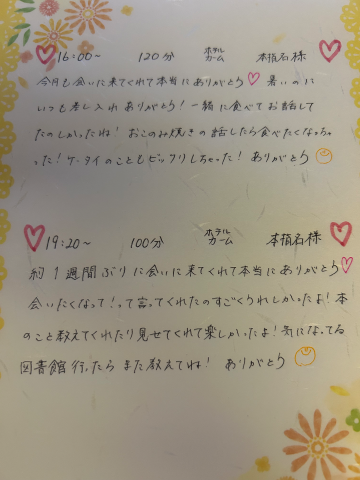 16:00～ 120分 ホテル カーム 本指名様
今月も会いに来てくれて本当にありがとう♡ 暑いのに
いつも差し入れありがとう！一緒に食べてお話して
たのしかったね！おこのみ焼きの話したら食べたくなっちゃ
った！ケータイのこともビックリしちゃった！ありがとう
19:20～ 100分 ホテル カーム 本指名様
約1週間ぶりに会いに来てくれて本当にありがとう♡
会いたくなって！って言ってくれたのすごくうれしかったよ！本
のこと教えてくれたり見せてくれて楽しかったよ！気になってる
図書館行ったらまた教えてね！ありがとう